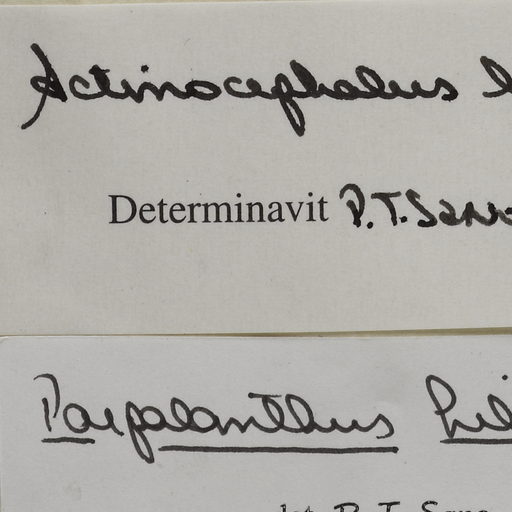 Actinocephalus
Determinavit P.T. Sano
Paepalanthus hil
det. P. T. Sano